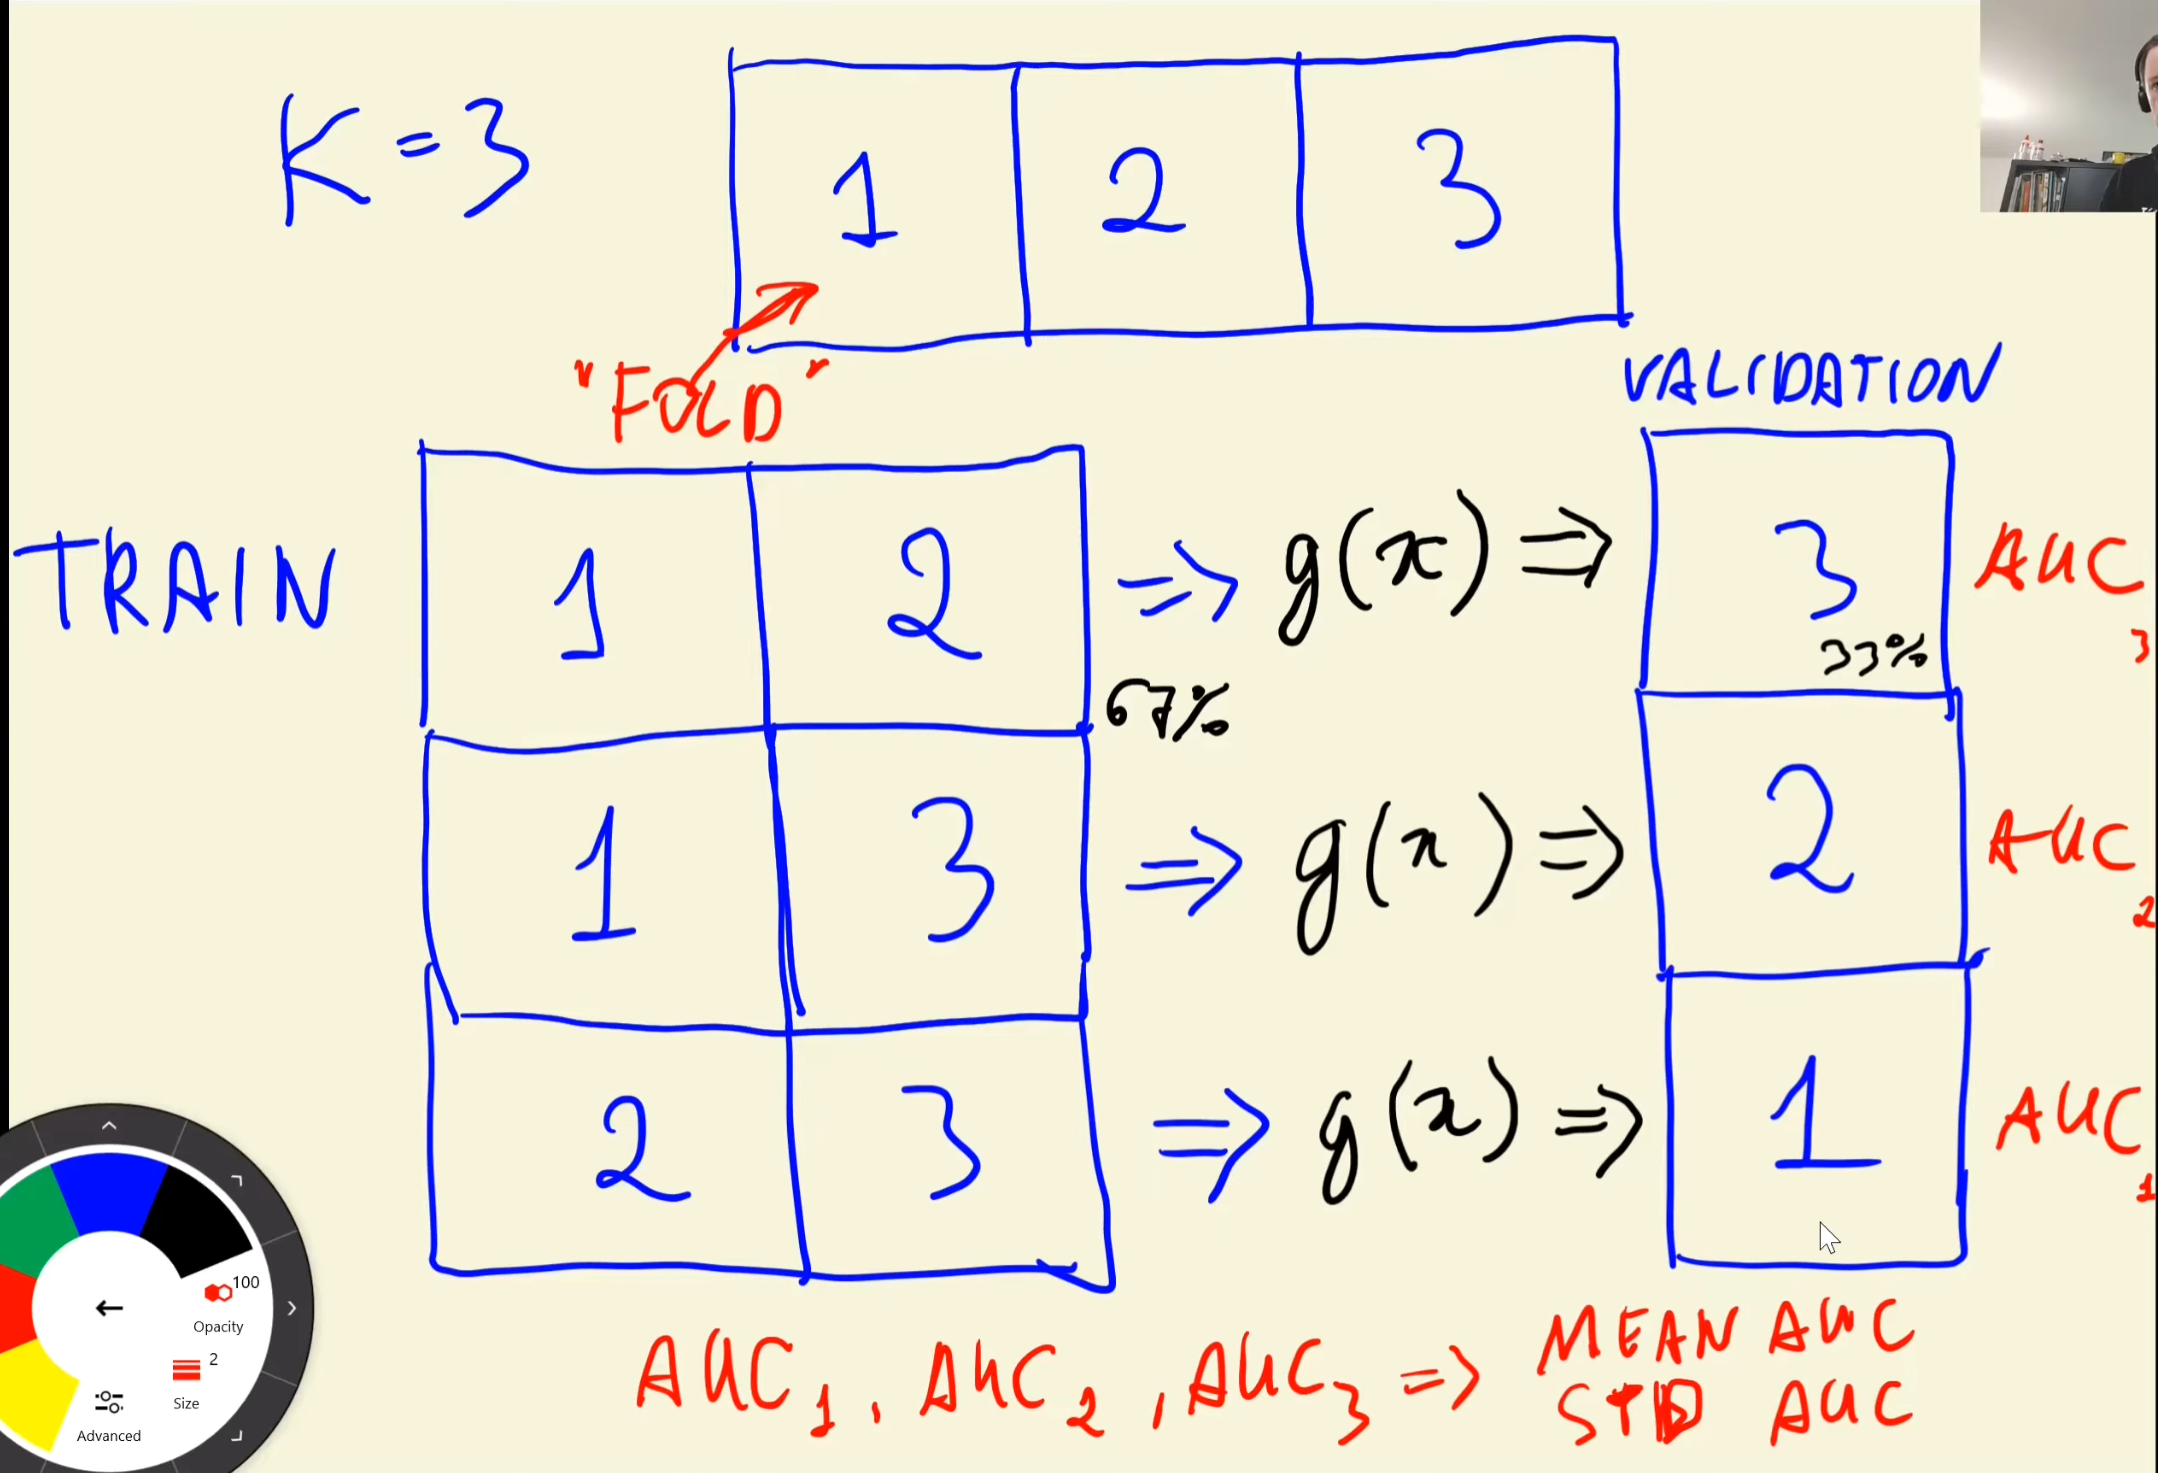 K = 3
1 2 3
"FOLD"
VALIDATION
TRAIN
1 2 => g(x) => 3 AUC3
67% 33%
1 3 => g(x) => 2 AUC2
2 3 => g(x) => 1 AUC1
AUC1, AUC2, AUC3 => MEAN AUC
STD AUC
100
Opacity
2
Size
Advanced